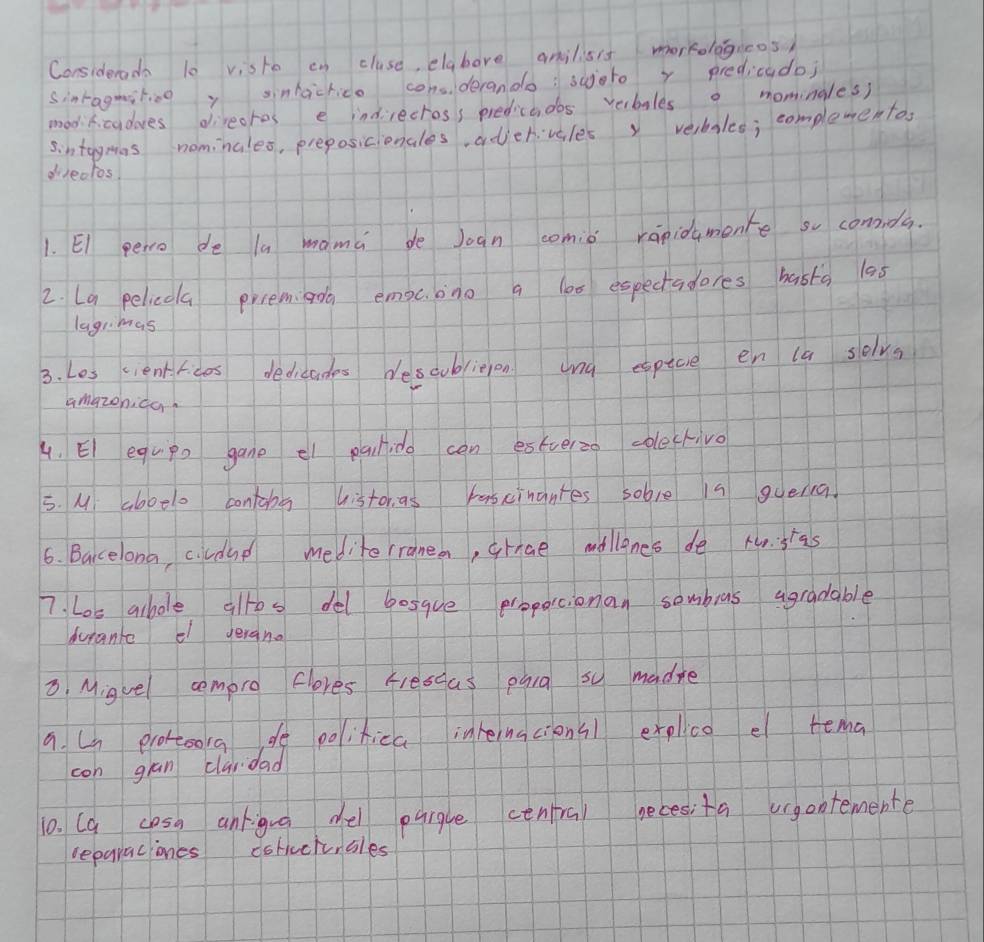 Considerado lo visto en clase, elabore análisis morfológicos,
sintagmático y sintáctico considerando: sujeto y predicado;
modificadores directos e indirectos; predicados verbales o nominales;
sintagmas nominales, preposicionales, adjetivales y verbales; complementos
directos.
1. El perro de la mamá de Joan comió rápidamente su comida.
2. La pelicola premiada emociono a los espectadores hasta las
lagrimas
3. Los cientificos dedicados descubrieron una especie en la selva
amazonica.
4. El equipo gano el partido con esfuerzo colectivo
5. Mi abuelo contaba historias fascinantes sobre la guerra.
6. Barcelona, ciudad mediterranea, atrae millones de turistas
7. Los arbole altos del bosque proporcionan sombras agradable
durante el verano
8. Miguel compro flores frescas para su madre
9. La profesora de politica internacional explico el tema
con gran claridad
10. La casa antigua del parque central necesita urgentemente
reparaciones estructurales